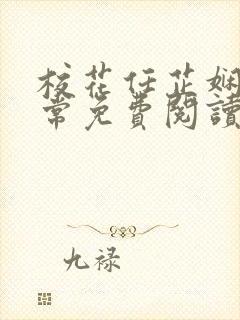 校花任芷娴
常免費閱讀
九禄